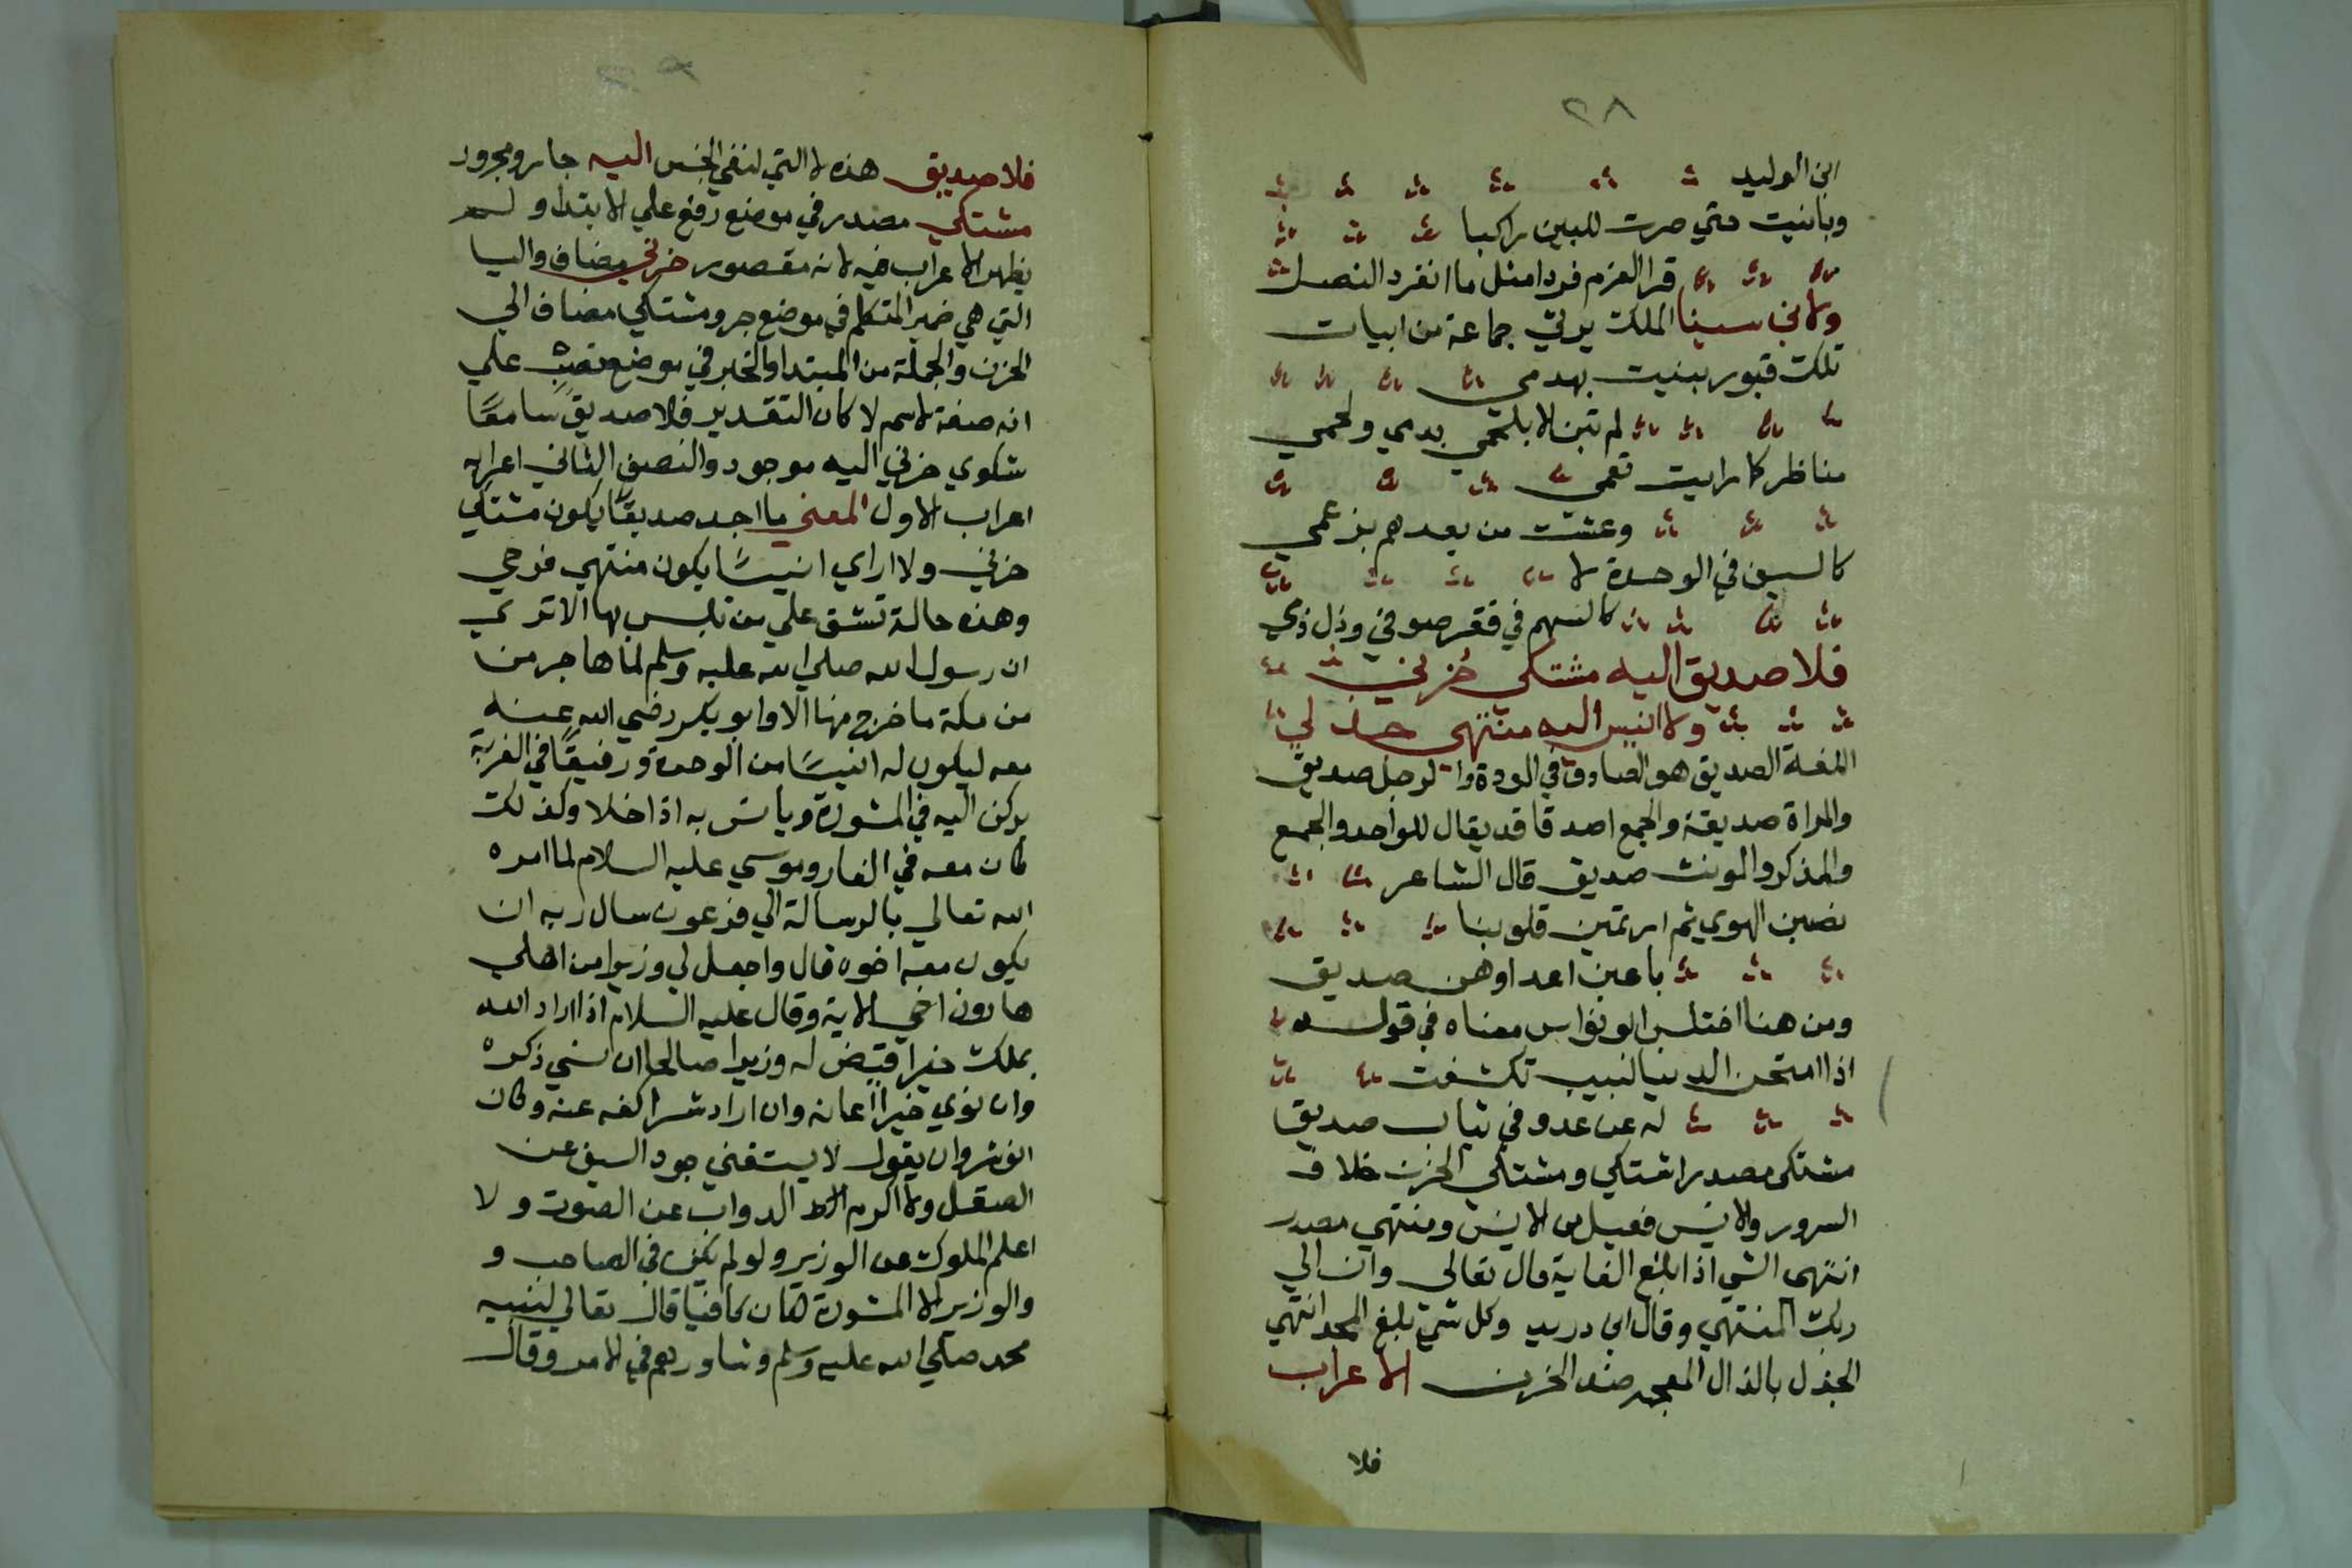 ٢٨
ابن الوليد
وبانيت حتي صرت للبين راكبا
قرا العزم فردا مثل ما انفرد النصل
ولابن سينا الملك يرثي جماعة من ابيات
تلك قبور بنيت بهدمي
لم تبن الا بدمي ولحمي
مناظر كا رايت تعمي
وعشت من بعدهم بزعمي
كالسيف في الوحدة لا
كالسهم في فقر صوفي وذل ذمي
فلا صديق اليه مشتكي حزني
ولا انيس اليه منتهي جذلي
اللغة الصديق هو الصادق في الودة والرجل صديق
والمراة صديقة والجمع اصدقا قد يقال للواحد والجمع
والمذكر والمونث صديق قال الشاعر
نصبن الهوي ثم ارتمين قلوبنا
باعين اعدا وهن صديق
ومن هنا اختلس ابو نواس معناه في قوله
اذا امتحن الدنيا لبيب تكشفت
له عن عدو في ثياب صديق
مشتكي مصدر اشتكي ومشتكي الحزن خلاف
السرور والانيس فعيل من الانس ومنتهي مصدر
انتهي الشي اذا بلغ الغاية قال تعالي وان الي
ربك المنتهي وقال ابن دريد وكل شي بلغ الحد انتهي
الجذل بالذال المعجمه ضد الحزن الاعراب
فلا
فلا صديق هذه لا التي لنفي الجنس اليه جار ومجرور
مشتكي مصدر في موضع رفع علي الابتدا ولم
يظهر الاعراب فيه لانه مقصور حزني مضاف واليا
التي هي ضمير المتكلم في موضع جر ومشتكي مضاف الي
الحزن والجملة من المبتدا والخبر في موضع نصب علي
انه صفة لاسم لا كان التقدير فلا صديق سامعًا
شكوي حزني اليه موجود والنصف الثاني اعرابه
اعراب الاول المعني ما اجد صديقًا يكون مشتكي
حزني ولا اراي انيسًا يكون منتهي فرحي
وهذه حالة تشق علي من تلبس بها الا تري
ان رسول الله صلي الله عليه وسلم لما هاجر من
من مكة ما خرج منها الا وابو بكر رضي الله عنه
معه ليكون له انيسًا من الوحدة ورفيقًا في الغربة
يركن اليه في المشورة ويانس به اذا خلا وكذلك
كان معه في الغار وموسي عليه السلام لما امره
الله تعالي بالرسالة الي فرعون سال ربه ان
يكون معه اخوه قال واجعل لي وزيرا من اهلي
هارون اخي الاية وقال عليه السلام اذا اراد الله
بملك خيرا قيض له وزيرا صالحا ان نسي ذكره
وان نوي خيرا اعانه وان اراد شرا كفه عنه وكان
انوشروان يقول لا يستغني جود السيف عن
الصقل ولا اكرم الدواب عن الصوت ولا
اعلم الملوك عن الوزير ولو لم يكن في الصاحب و
والوزير الا المشورة لكان كافيا قال تعالي لنبيه
محمد صلي الله عليه وسلم وشاورهم في الامر وقال